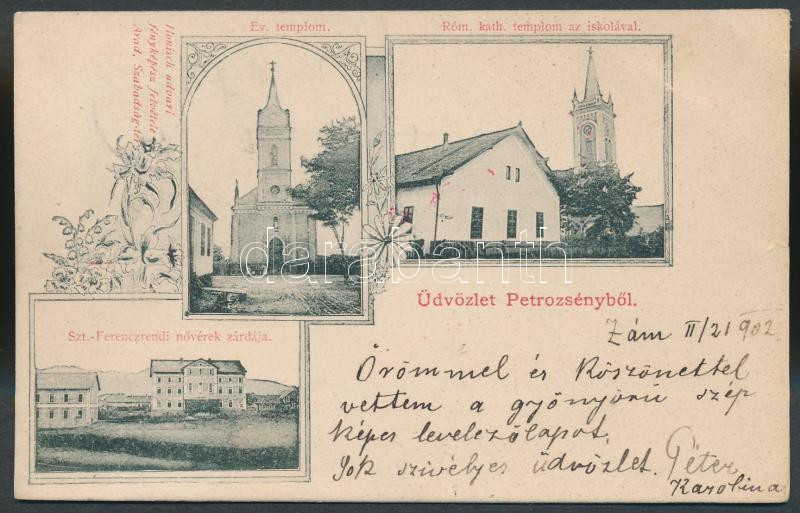 Ev. templom.
Róm. kath. templom az iskolával.
fényképész felvétele
Arad, Szabadság-tér
Üdvözlet Petrozsényből.
Szt.-Ferenczrendi nővérek zárdája.
Zám II/21 902
Örömmel és Köszönettel
vettem a gyönyörü szép
képes levelezőlapot.
Sok szivélyes üdvözlet. Péter
Karolina
darabanth